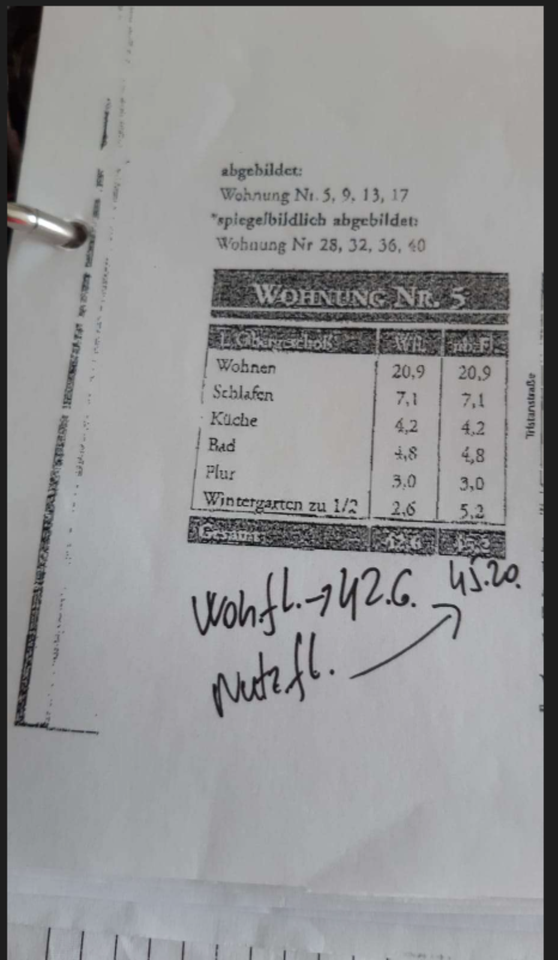 abgebildet:
Wohnung Nr. 5, 9, 13, 17
*spiegelbildlich abgebildet:
Wohnung Nr 28, 32, 36, 40
WOHNUNG NR. 5
1. Obergeschoß Wfl. nb. Fl.
Wohnen 20,9 20,9
Schlafen 7,1 7,1
Küche 4,2 4,2
Bad 4,8 4,8
Flur 3,0 3,0
Wintergarten zu 1/2 2,6 5,2
Gesamt 42,6
45.20.
Wohfl. → 42.6.
Nutzfl.
Tristanstraße